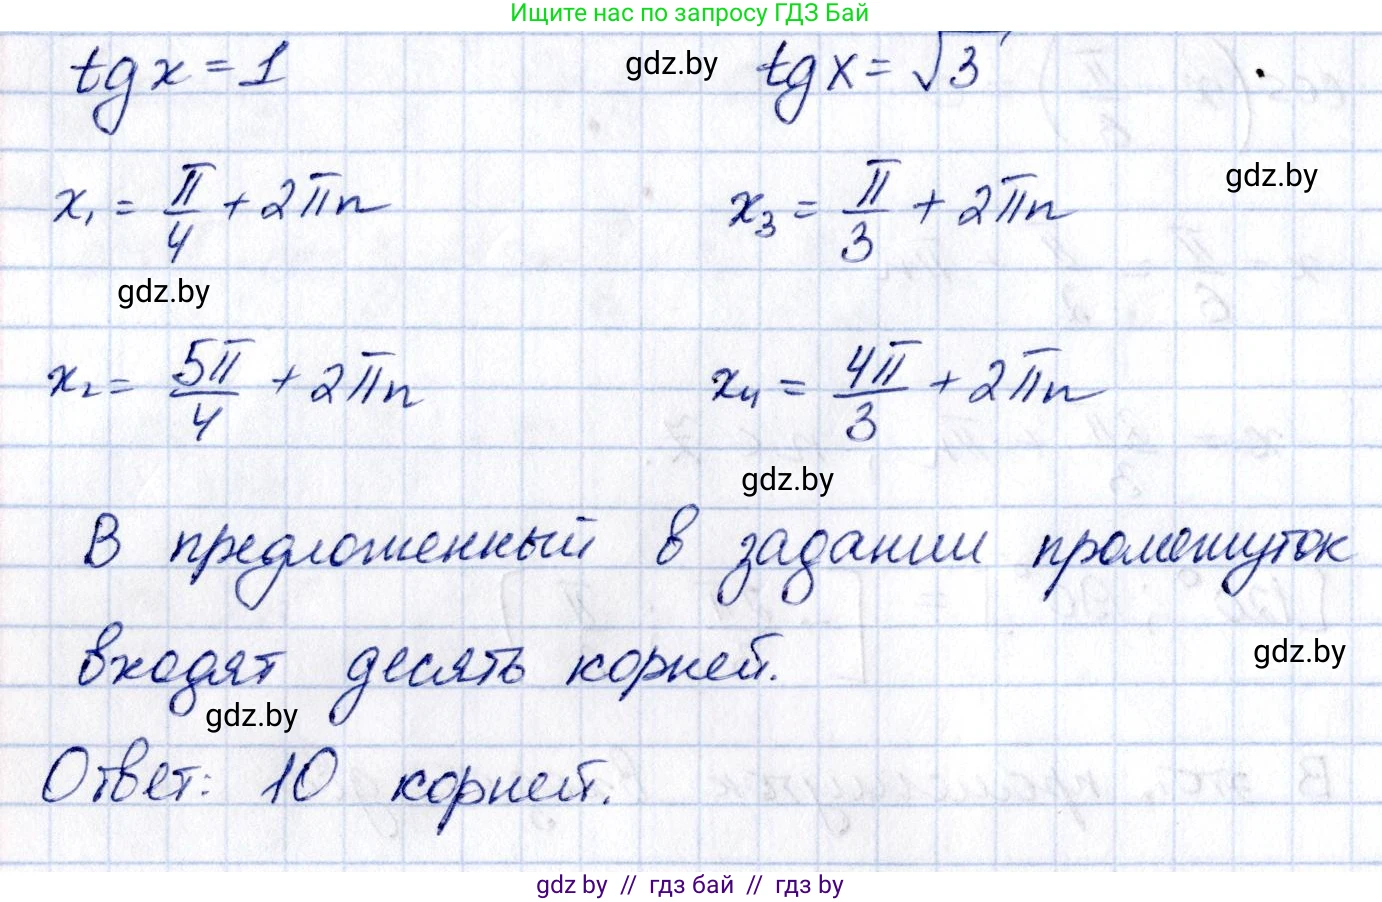 Ищите нас по запросу ГДЗ Бай
tg x = 1 gdz.by tg x = √3
gdz.by
x₁ = π/4 + 2πn x₃ = π/3 + 2πn
gdz.by
x₂ = 5π/4 + 2πn x₄ = 4π/3 + 2πn
gdz.by
В предложенный в задании промежуток
входят десять корней.
gdz.by
gdz.by
Ответ: 10 корней.
gdz by // гдз бай // гдз by